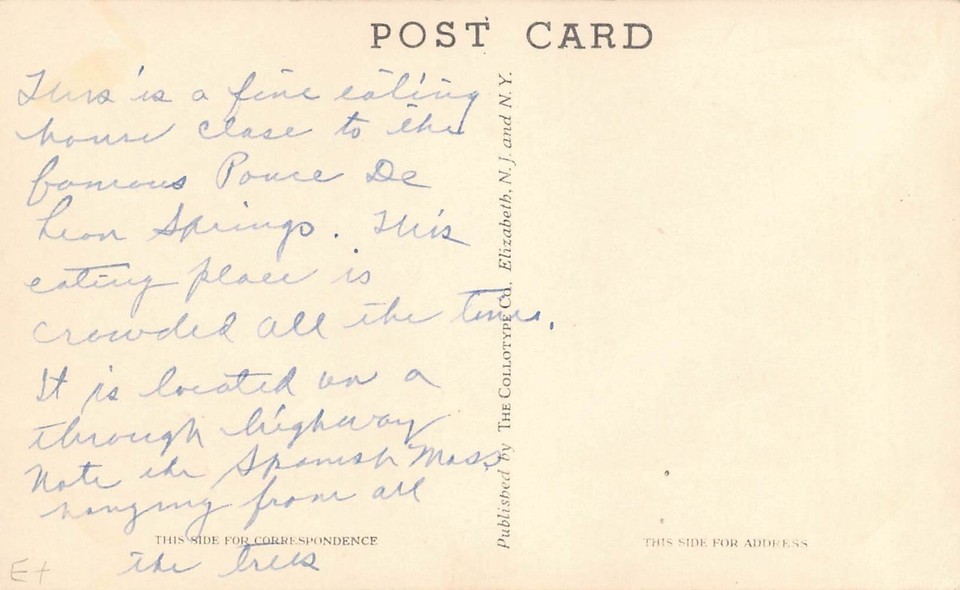 POST CARD
This is a fine eating
house close to the
famous Ponce De
Leon Springs. This
eating place is
crowded all the time.
It is located on a
through highway
Note the Spanish Moss
hanging from all
the trees
THIS SIDE FOR CORRESPONDENCE
E+
Published by THE COLLOTYPE CO., Elizabeth, N. J. and N. Y.
THIS SIDE FOR ADDRESS